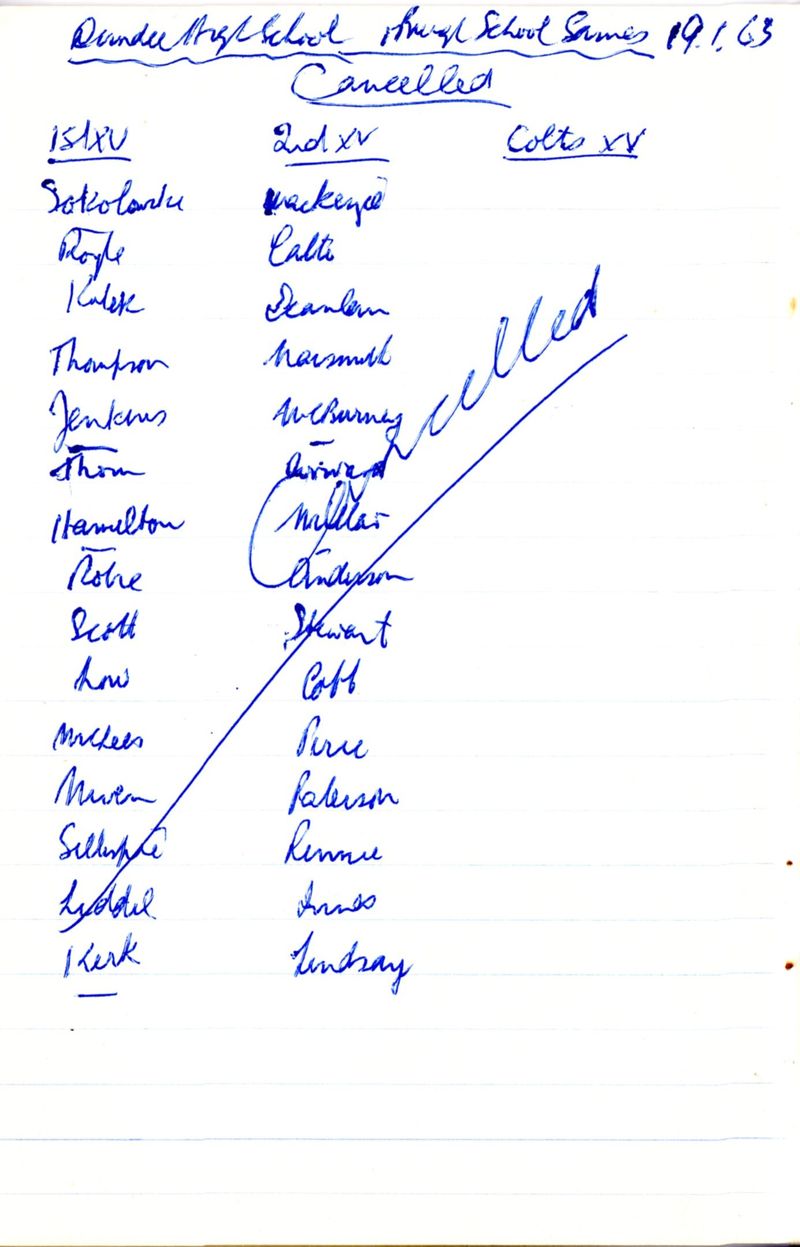 Dundee High School School Games 19.1.63
Cancelled
1st XV 2nd XV Colts XV
Sokolowski Mackenzie
Royle
Thompson Naismith
Jenkins McBurney
Thom
Hamilton Millar
Anderson
Scott Stewart
Low Cobb
McLees Pirie
Paterson
Gillespie Rennie
Liddel Innes
Kerk Lindsay
Cancelled